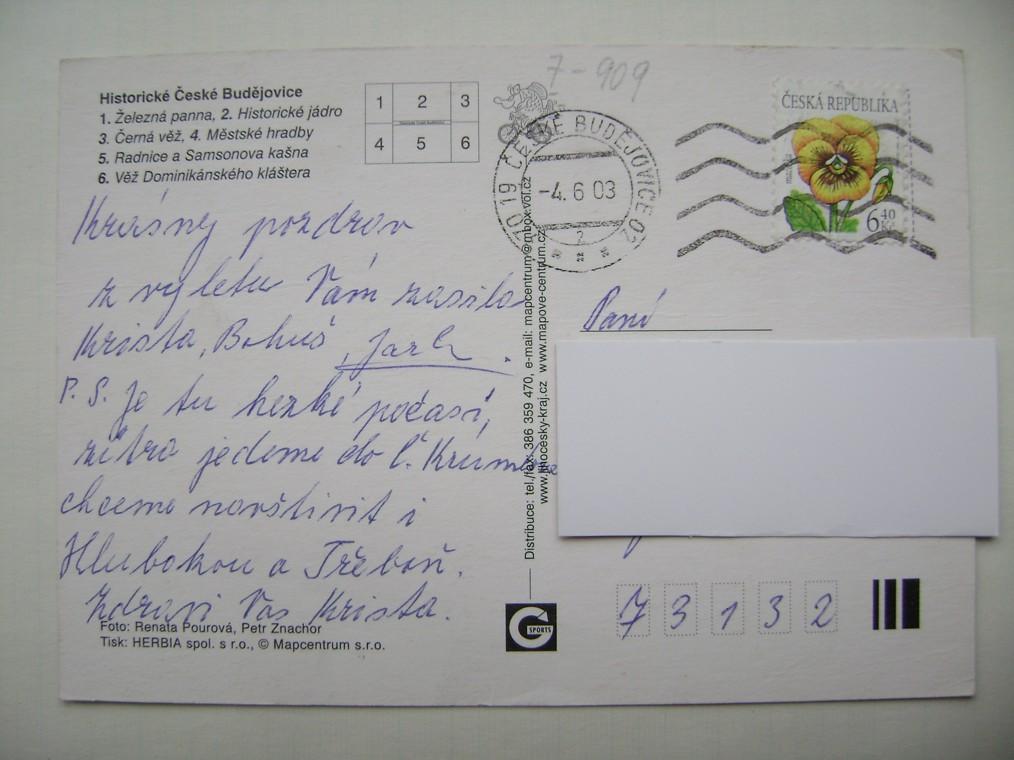 7-909
Historické České Budějovice
1. Železná panna, 2. Historické jádro
3. Černá věž, 4. Městské hradby
5. Radnice a Samsonova kašna
6. Věž Dominikánského kláštera
1 2 3
4 5 6
ČESKÁ REPUBLIKA
6 40 Kč
70 19 ČESKÉ BUDĚJOVICE 02
-4.6 03
2
Krásný pozdrav
z výletu Vám zasílá
Krista, Bohuš,
P. S. Je tu hezké počasí,
zítra jedeme do Č. Krumlova
chceme navštívit i
Hlubokou a Třeboň.
Zdraví Vás Krista.
Foto: Renata Pourová, Petr Znachor
Tisk: HERBIA spol. s r.o., © Mapcentrum s.r.o.
Distribuce: tel./fax: 386 359 470, e-mail: mapcentrum@mbox.vol.cz
www.jihocesky-kraj.cz www.mapove-centrum.cz
G SPORTS
Paní
7 3 1 3 2